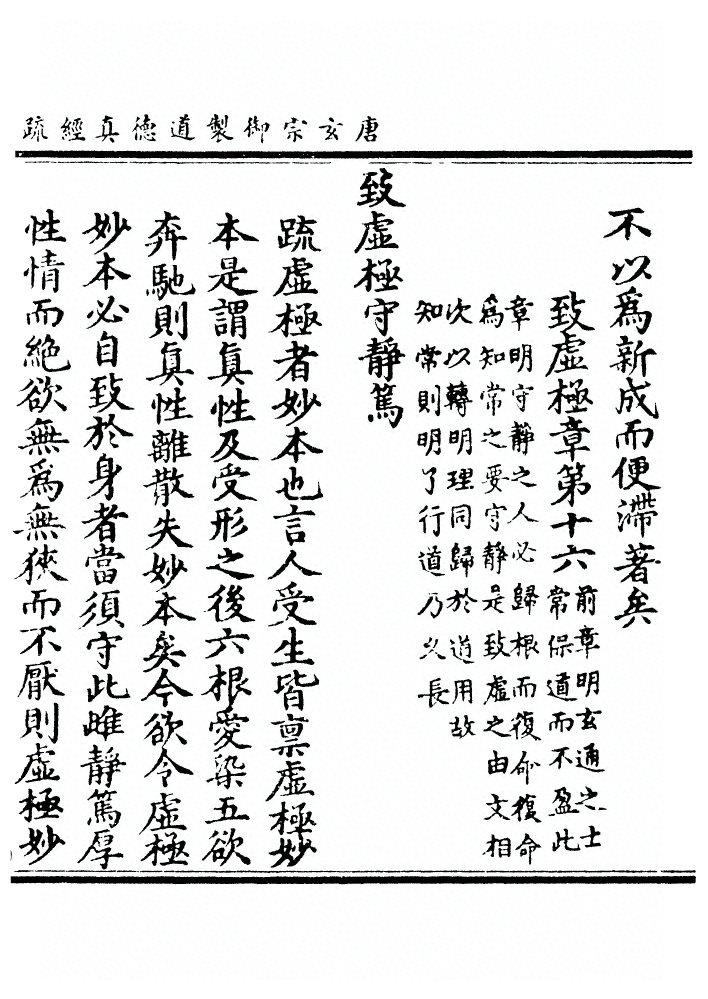 唐玄宗御製道德真經疏
不以爲新成而便滯著矣
致虛極章第十六
前章明玄通之士
常保道而不盈此
章明守靜之人必歸根而復命復命
爲知常之要守靜是致虛之由文相
次以轉明理同歸於道用故
知常則明了行道乃乆長
致虛極守靜篤
疏虛極者妙本也言人受生皆禀虛極妙
本是謂真性及受形之後六根愛染五欲
奔馳則真性離散失妙本矣今欲令虛極
妙本必自致於身者當須守此雌靜篤厚
性情而絕欲無爲無狹而不厭則虛極妙